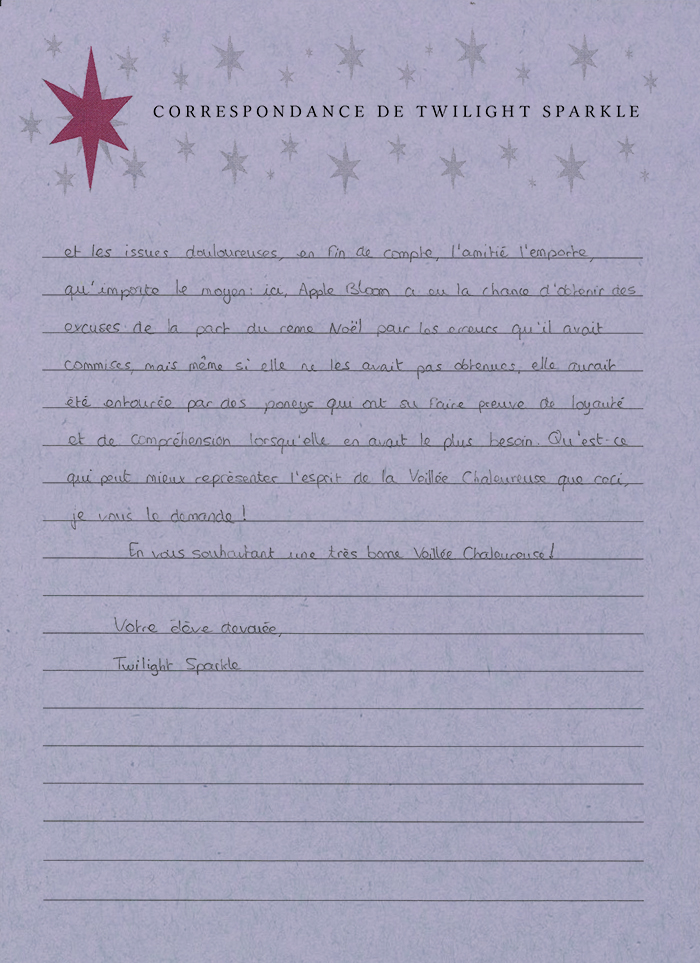 CORRESPONDANCE DE TWILIGHT SPARKLE
et les issues douloureuses, en fin de compte, l'amitié l'emporte,
qu'importe le moyen: ici, Apple Bloom a eu la chance d'obtenir des
excuses de la part du renne Noël pour les erreurs qu'il avait
commises, mais même si elle ne les avait pas obtenues, elle aurait
été entourée par des poneys qui ont su faire preuve de loyauté
et de compréhension lorsqu'elle en avait le plus besoin. Qu'est-ce
qui peut mieux représenter l'esprit de la Veillée Chaleureuse que ceci,
je vous le demande !
En vous souhaitant une très bonne Veillée Chaleureuse !
Votre élève dévouée,
Twilight Sparkle